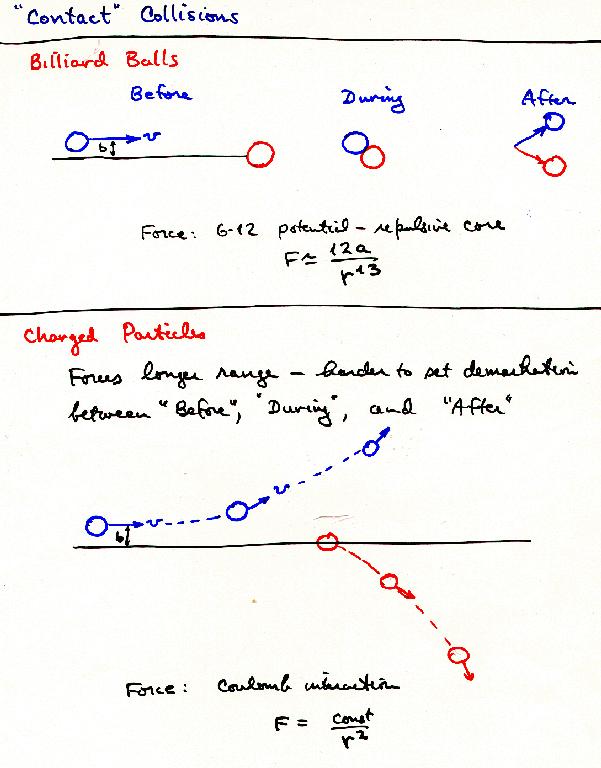 "Contact" Collisions
Billiard Balls
Before During After
b v
Force: 6-12 potential - repulsive core
F ≃ 12a / r^13
Charged Particles
Forces longer range - harder to set demarkation
between "Before", "During", and "After"
v
b v
Force: Coulomb interaction
F = const / r^2